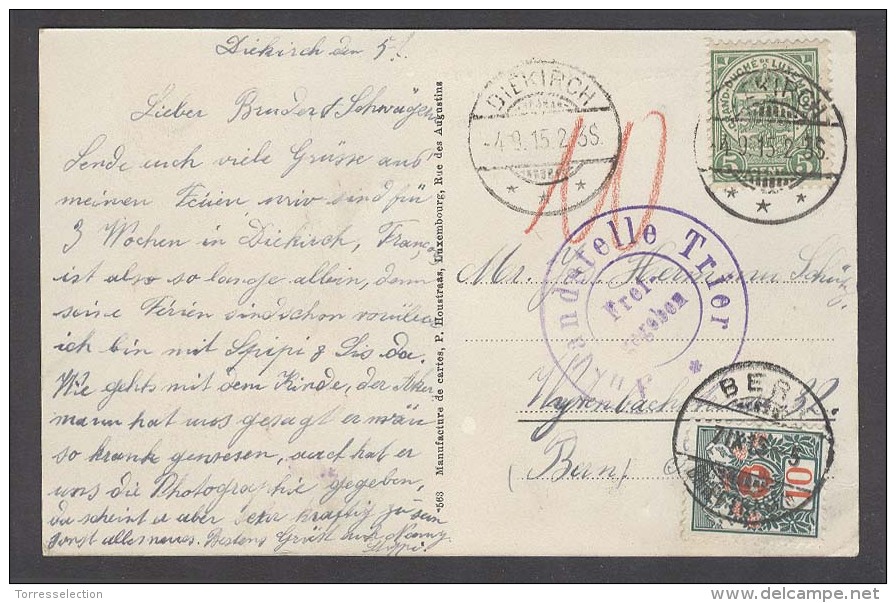 Diekirch den 5/
Lieber Bruder & Schwägerin
Sende euch viele Grüsse aus
meinen Ferien wir sind für
3 Wochen in Diekirch, François
ist also so lange allein, denn
seine Ferien sind schon vorüber
ich bin mit Pipi & Sis da.
Wie gehts mit dem Kinde, der
mann hat uns gesagt er wär
so krank gewesen, auch hat er
uns die Photographie gegeben,
da scheint er aber sehr kräftig zu sein
sonst alles neues. Bestens Grüsst euch
563 Manufacture de cartes, P. Houstraas, Luxembourg, Rue des Augustins
DIEKIRCH
-4.9.15.2-3S.
10
GRAND DUCHÉ DE LUXEMBOURG
5 5
KIRCH
-4.9.15.2-3S.
Trier
Frei-
gegeben
Mr. Hermann
Wyrenbachen 32
(Bern)
BERN
7.IX.15 5
10
Torresselection
delcampe.net